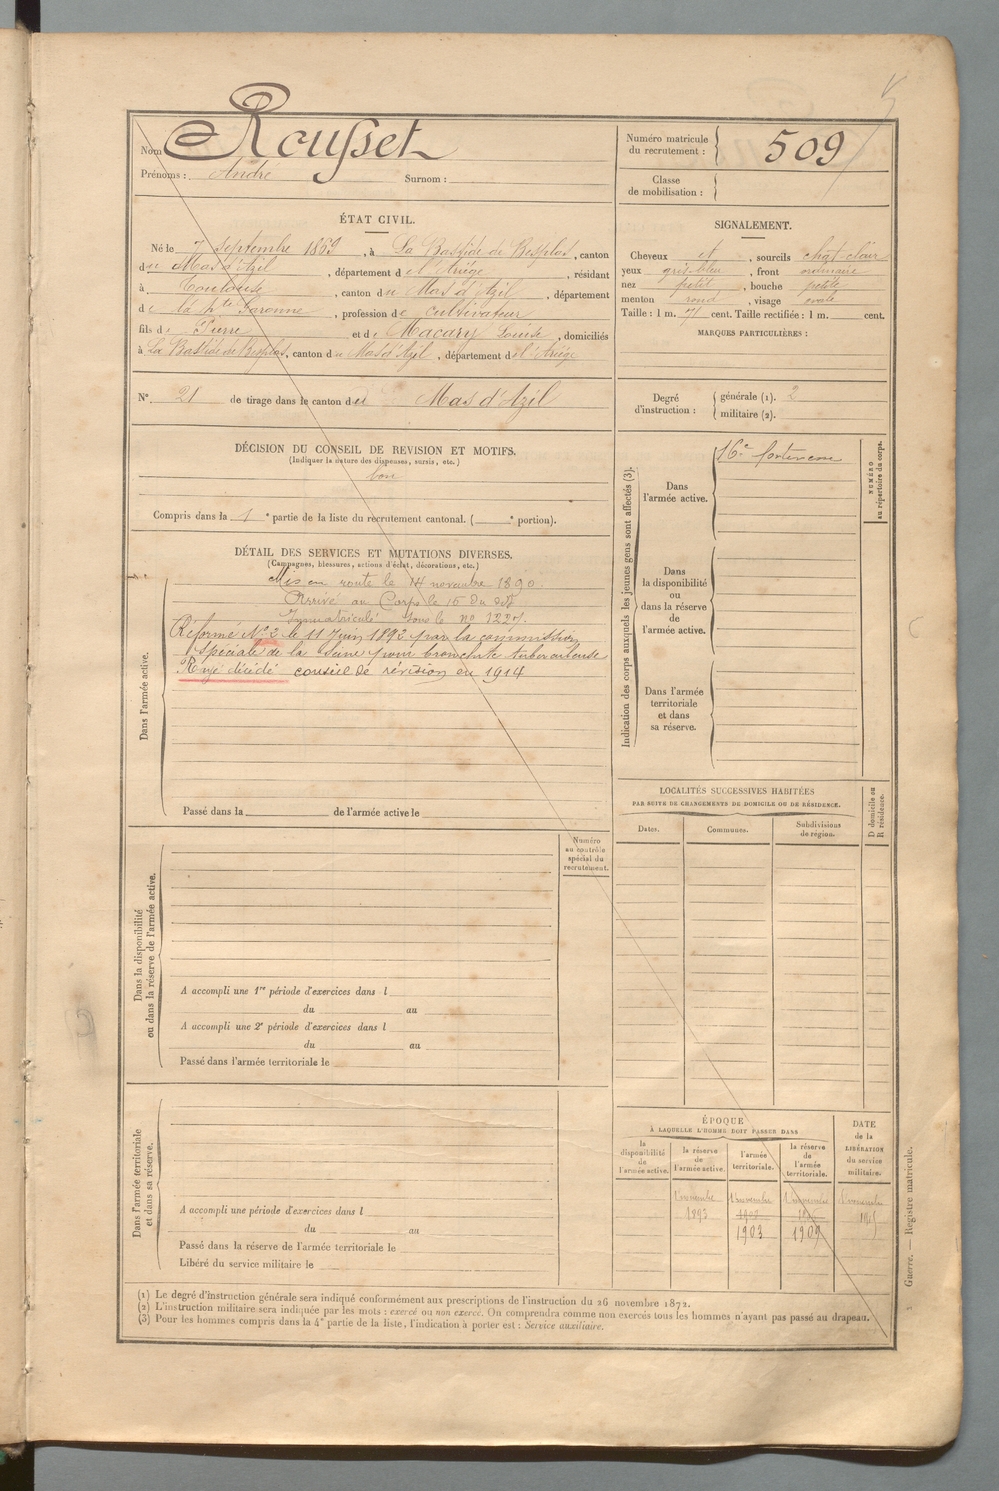 Nom Rousset
Prénoms : André Surnom :
Numéro matricule du recrutement : 509
Classe de mobilisation :
ÉTAT CIVIL.
Né le 7 septembre 1869, à La Bastide de Besplas, canton
du Mas d'Azil, département de l'Ariège, résidant
à Toulouse, canton du Mas d'Azil, département
de la hte Garonne, profession de cultivateur
fils de Pierre et de Macary Louise, domiciliés
à La Bastide de Besplas, canton du Mas d'Azil, département de l'Ariège
N° 21 de tirage dans le canton du Mas d'Azil
SIGNALEMENT.
Cheveux et, sourcils chat-clair
yeux gris-bleu, front ordinaire
nez petit, bouche petite
menton rond, visage ovale
Taille : 1 m. 71 cent. Taille rectifiée : 1 m. cent.
MARQUES PARTICULIÈRES :
Degré d'instruction : générale (1). 2
militaire (2).
DÉCISION DU CONSEIL DE REVISION ET MOTIFS.
(Indiquer la nature des dispenses, sursis, etc.)
bon
Compris dans la 1e partie de la liste du recrutement cantonal. ( e portion).
DÉTAIL DES SERVICES ET MUTATIONS DIVERSES.
(Campagnes, blessures, actions d'éclat, décorations, etc.)
Dans l'armée active.
Mis en route le 14 novembre 1890.
Arrivé au Corps le 15 du dit
Immatriculé sous le no 1227.
Réformé No 2 le 11 Juin 1892 par la commission
spéciale de la Seine pour bronchite tuberculeuse
Rayé décédé conseil de révision en 1914
Passé dans la de l'armée active le
Indication des corps auxquels les jeunes gens sont affectés (3).
Dans l'armée active.
16e forteresse
NUMÉRO au répertoire du corps.
Dans la disponibilité ou dans la réserve de l'armée active.
Dans l'armée territoriale et dans sa réserve.
LOCALITÉS SUCCESSIVES HABITÉES
PAR SUITE DE CHANGEMENTS DE DOMICILE OU DE RÉSIDENCE.
Dates. Communes. Subdivisions de région.
D domicile ou R résidence.
Numéro au contrôle spécial du recrutement.
Dans la disponibilité ou dans la réserve de l'armée active.
A accompli une 1re période d'exercices dans l
du au
A accompli une 2e période d'exercices dans l
du au
Passé dans l'armée territoriale le
Dans l'armée territoriale et dans sa réserve.
A accompli une période d'exercices dans l
du au
Passé dans la réserve de l'armée territoriale le
Libéré du service militaire le
ÉPOQUE
À LAQUELLE L'HOMME DOIT PASSER DANS
la disponibilité de l'armée active.
la réserve de l'armée active.
l'armée territoriale.
la réserve de l'armée territoriale.
DATE de la LIBÉRATION du service militaire.
1 novembre 1 novembre 1 novembre 1 novembre
1893
1903 1909
Guerre. — Registre matricule.
(1) Le degré d'instruction générale sera indiqué conformément aux prescriptions de l'instruction du 26 novembre 1872.
(2) L'instruction militaire sera indiquée par les mots : exercé ou non exercé. On comprendra comme non exercés tous les hommes n'ayant pas passé au drapeau.
(3) Pour les hommes compris dans la 4e partie de la liste, l'indication à porter est : Service auxiliaire.